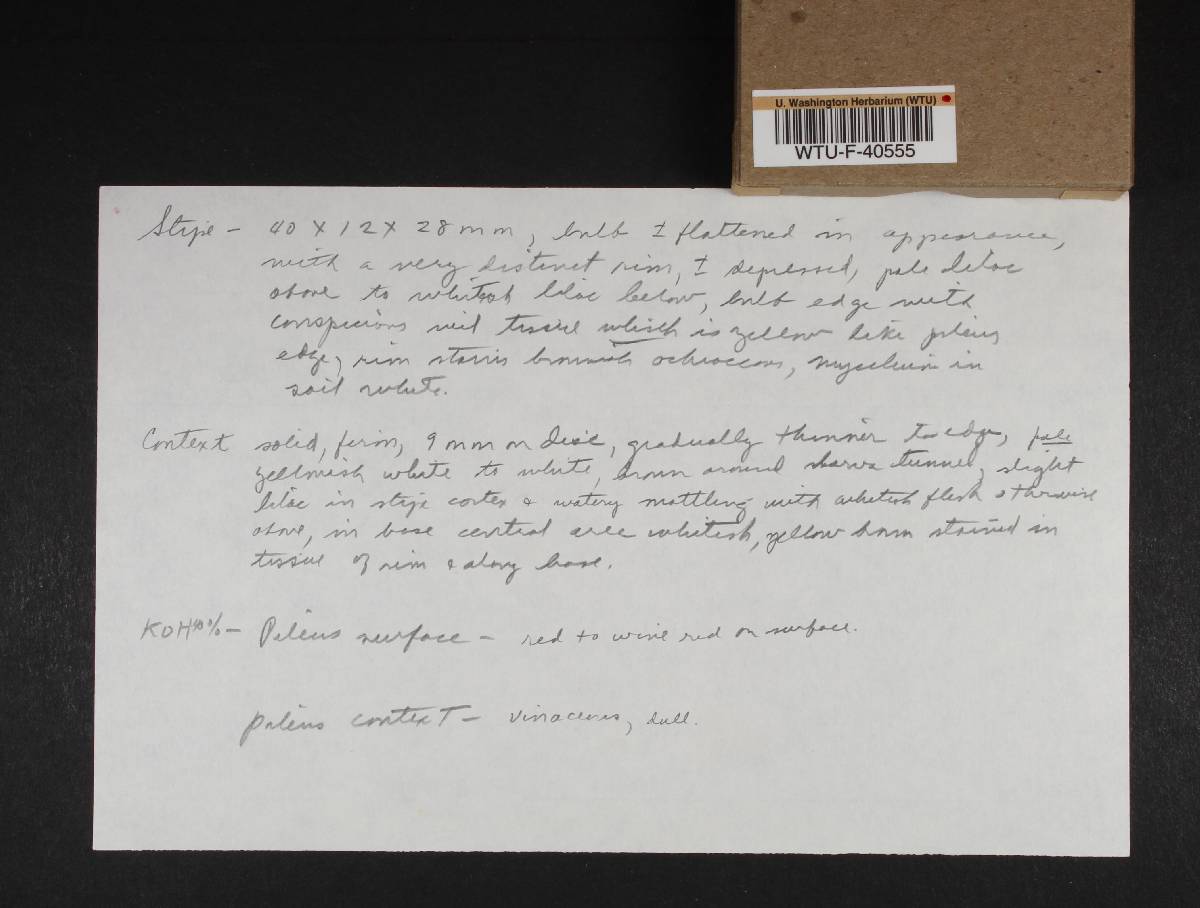 U. Washington Herbarium (WTU)
WTU-F-40555
Stipe - 40 X 12 X 28 mm, bulb ± flattened in appearance,
with a very distinct rim, ± depressed, pale lilac
above to whitish lilac below, bulb edge with
conspicuous veil tissue which is yellow like pileus
edge, rim stains brownish ochraceous, mycelium in
soil white.
Context solid, firm, 9 mm on disc, gradually thinner to edge, pale
yellowish white to white, brown around larva tunnel, slight
lilac in stipe cortex & watery mottling with whitish flesh otherwise
above, in base central area whitish, yellow brown stained in
tissue of rim & along base.
KOH 40% - Pileus surface - red to wine red on surface.
pileus context - vinaceous, dull.